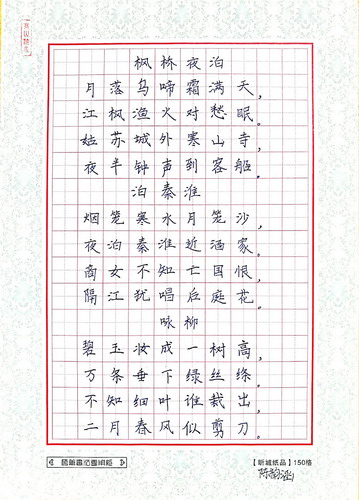 枫桥夜泊
月落乌啼霜满天，
江枫渔火对愁眠。
姑苏城外寒山寺，
夜半钟声到客船。
泊秦淮
烟笼寒水月笼沙，
夜泊秦淮近酒家。
商女不知亡国恨，
隔江犹唱后庭花。
咏柳
碧玉妆成一树高，
万条垂下绿丝绦。
不知细叶谁裁出，
二月春风似剪刀。
【昕城纸品】150格